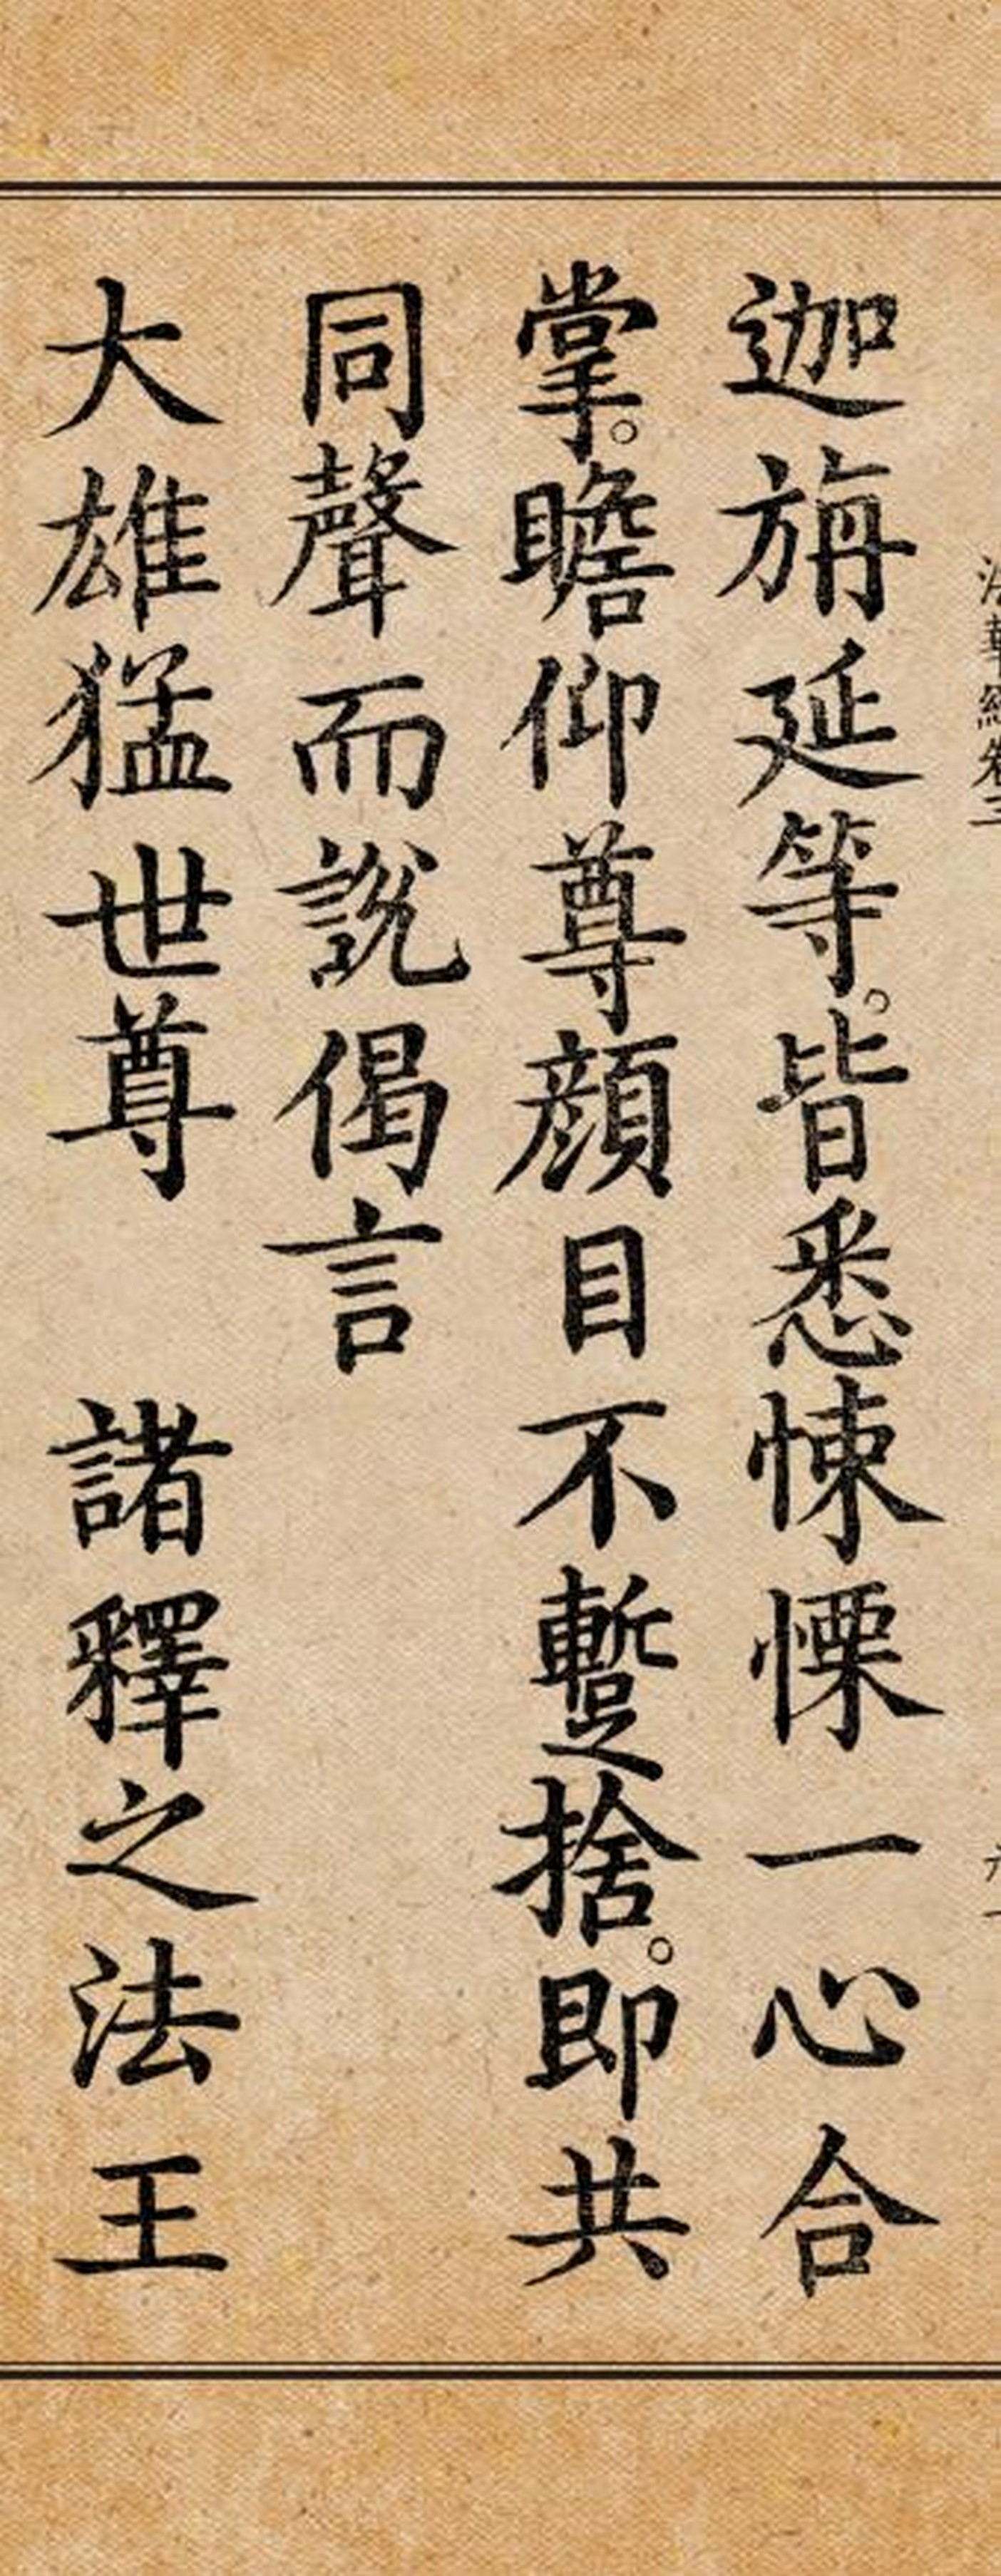 法華經卷三
迦旃延等。皆悉悚慄一心合
掌。瞻仰尊顏目不蹔捨。即共
同聲而說偈言
大雄猛世尊　諸釋之法王